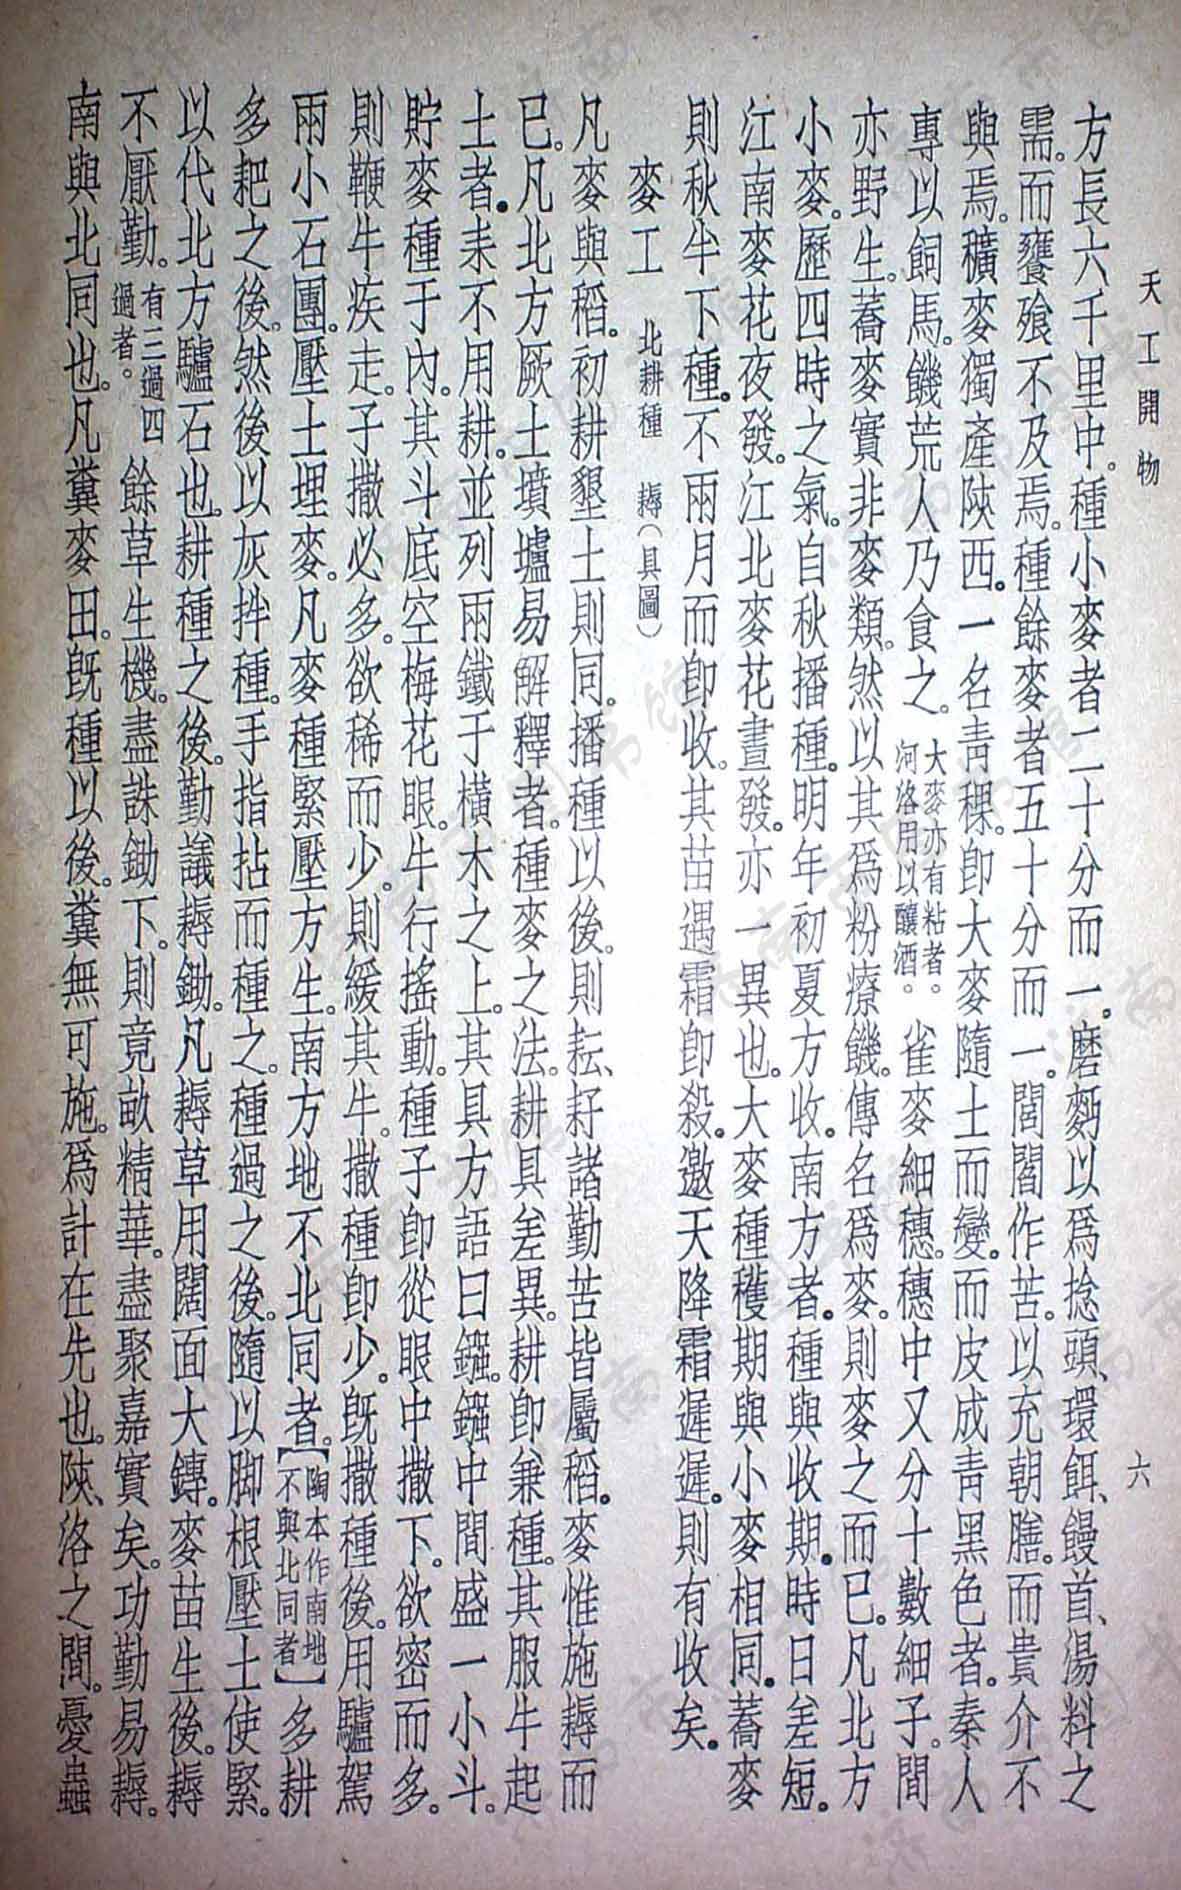 天工開物
六
方長六千里中。種小麥者二十分而一。磨麪以爲捻頭、環餌、饅首、湯料之
需。而饔飱不及焉。種餘麥者五十分而一。閭閻作苦。以充朝膳。而貴介不
與焉。穬麥獨產陝西。一名青稞。卽大麥隨土而變。而皮成青黑色者。秦人
專以飼馬。饑荒人乃食之。大麥亦有粘者。河洛用以釀酒。雀麥細穗。穗中又分十數細子。間
亦野生。蕎麥實非麥類。然以其爲粉療饑。傳名爲麥。則麥之而已。凡北方
小麥。歷四時之氣。自秋播種。明年初夏方收。南方者。種與收期。時日差短。
江南麥花夜發。江北麥花晝發。亦一異也。大麥種穫期與小麥相同。蕎麥
則秋半下種。不兩月而卽收。其苗遇霜卽殺。邀天降霜遲遲。則有收矣。
麥工 北耕種 耨（具圖）
凡麥與稻。初耕墾土則同。播種以後。則耘、耔諸勤苦皆屬稻。麥惟施耨而
已。凡北方厥土墳壚易解釋者。種麥之法。耕具差異。耕卽兼種。其服牛起
土者。耒不用耕。並列兩鐵于橫木之上。其具方語曰鏹。鏹中間盛一小斗。
貯麥種于內。其斗底空梅花眼。牛行搖動。種子卽從眼中撒下。欲密而多。
則鞭牛疾走。子撒必多。欲稀而少。則緩其牛。撒種卽少。旣撒種後。用驢駕
兩小石團。壓土埋麥。凡麥種緊壓方生。南方地不北同者。【陶本作南地不與北同者】多耕
多耙之後。然後以灰拌種。手指拈而種之。種過之後。隨以脚根壓土使緊。
以代北方驢石也。耕種之後。勤議耨鋤。凡耨草用闊面大鎛。麥苗生後。耨
不厭勤。有三過四過者。餘草生機。盡誅鋤下。則竟畝精華。盡聚嘉實矣。功勤易耨。
南與北同也。凡糞麥田。旣種以後。糞無可施。爲計在先也。陝、洛之間。憂蟲